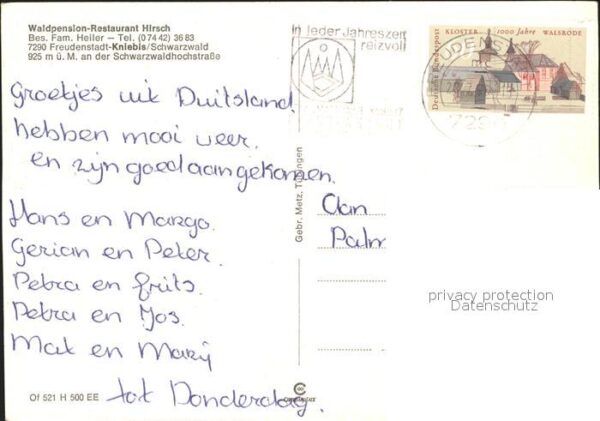 Waldpension-Restaurant Hirsch
Bes. Fam. Heller — Tel. (0 74 42) 36 83
7290 Freudenstadt-Kniebis/Schwarzwald
925 m ü. M. an der Schwarzwaldhochstraße
In jeder Jahreszeit
reizvoll
KLOSTER 1000 Jahre WALSRODE
Deutsche Bundespost
Groetjes uit Duitsland.
hebben mooi weer.
en zijn goed aangekomen.
Hans en Margo.
Gerian en Peter.
Petra en Frits.
Petra en Jos.
Mat en Marij
tot Donderdag.
Gebr. Metz, Tübingen
Aan
Palm
privacy protection
Datenschutz
Of 521 H 500 EE